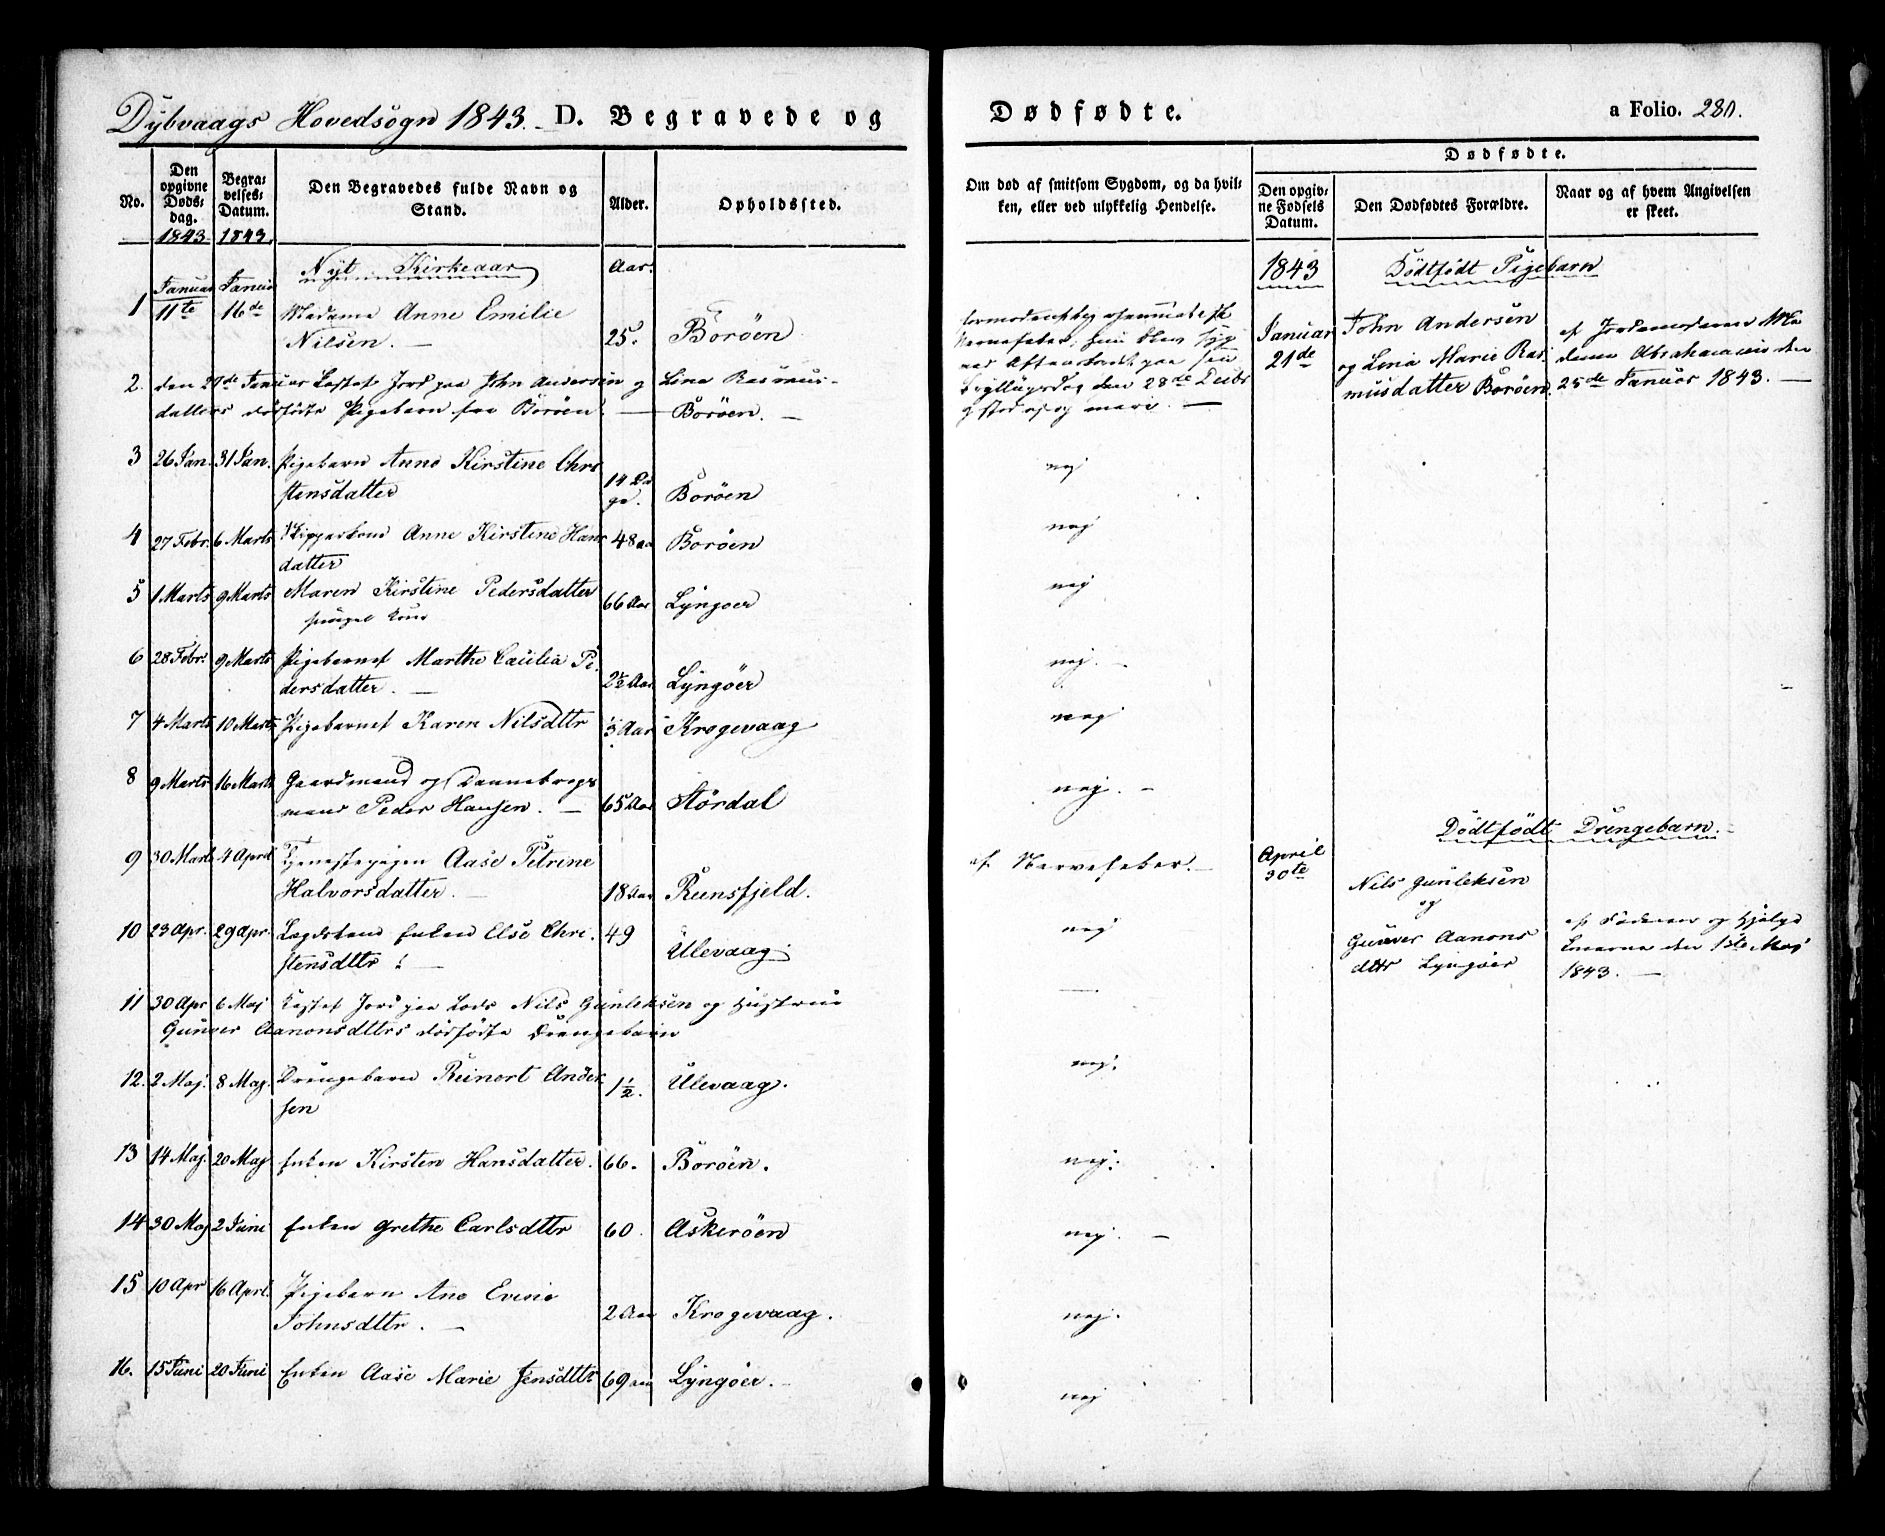 Dybvaags Hovedsogn 1843. D. Begravede og Dødfødte. a Folio. 280.
No.
Den opgivne Døds-dag. 1843
Begra-velses-Datum. 1843.
Den Begravedes fulde Navn og Stand.
Alder.
Opholdssted.
Om død af smitsom Sygdom, og da hvil-
ken, eller ved ulykkelig Hendelse.
Dødfødte.
Den opgiv-ne Fødsels Datum.
Den Dødfødtes Forældre.
Naar og af hvem Angivelsen
er skeet.
Nyt Kirkeaar Aar.
1 Januar 11te Januar 16de Madame Anne Emilie
Nilsen. — 25. Boröen
2. den 27de Januar kastet Jord paa John Andersen og Line Rasmus-
datters dödfödte Pigebarn fra Boröen. — Boröen. —
3 26 Jan. 31 Jan. Pigebarn Anne Kirstine Chri
stensdatter 14 Da
ge. Boröen
4 27 Febr. 6 Marts Skipperkone Anne Kirstine Hans
datter 48 aar Boröen
5 1 Marts 9 Marts Maren Kirstine Pedersdatter
66 Aar Lyngoer
6 28 Febr. 9 Marts Pigebarnet Marthe Cæcilia Pe.
dersdatter. — 2½ Aar Lyngöer
7 4 Marts 10 Marts Pigebarnet Karen Nilsdttr ⅓ Aar Krogevaag
8 9 Marts 16 Marts Gaardmand og Dannebrogs
mand Peder Hansen. — 65 Aar Stördal
9 30 Marts 4 April Tjenestepigen Aase Petrine
Halvorsdatter. — 18 Aar Runsfjeld.
10 23 Apr. 29 Apr. Lægdslem Enken Else Chri.
stensdttr. — 49 Ulevaag.
11 30 Apr 6 Maj Kastet Jord paa Lods Nils Gunleksen og Hustrue
Gunver Aanonsdttrs dödfödte Drengebarn
12. 2 Maj. 8 Maj. Drengebarn Reinert Ander
sen 1½. Ulevaag.
13 14 Maj. 20 Maj Enken Kirsten Hansdatter. 66. Boröen.
14 30 Maj 2 Juni Enken Grethe Carlsdttr 60. Askeröen
15 10 Apr 16 Aprl. Pigebarn Ane
Johnsdttr. — 2 Aar Krogevaag.
16. 15 Juni 20 Juni Enken Aase Marie Jensdttr 69 aar Lyngöer. —
den 28de Decbr
nej
nej
nej
nej. —
nej
nej. —
af Nervefeber. —
nej
—
nej.
nej.
nej. —
nej.
nej
1843 Dödfödt Pigebarn
Januar
21de
John Andersen
og Lena Marie Ras
musdatter Boröen.
af Jordemoderen Ma
dame Abrahamsen den
25de Januar 1843. —
Dödfödt Drengebarn. —
April
30te
Nils Gunleksen
og
Gunver Aanons
dttr Lyngöer
af Faderen og Hjelpe
konerne den 1ste Maj
1843. —